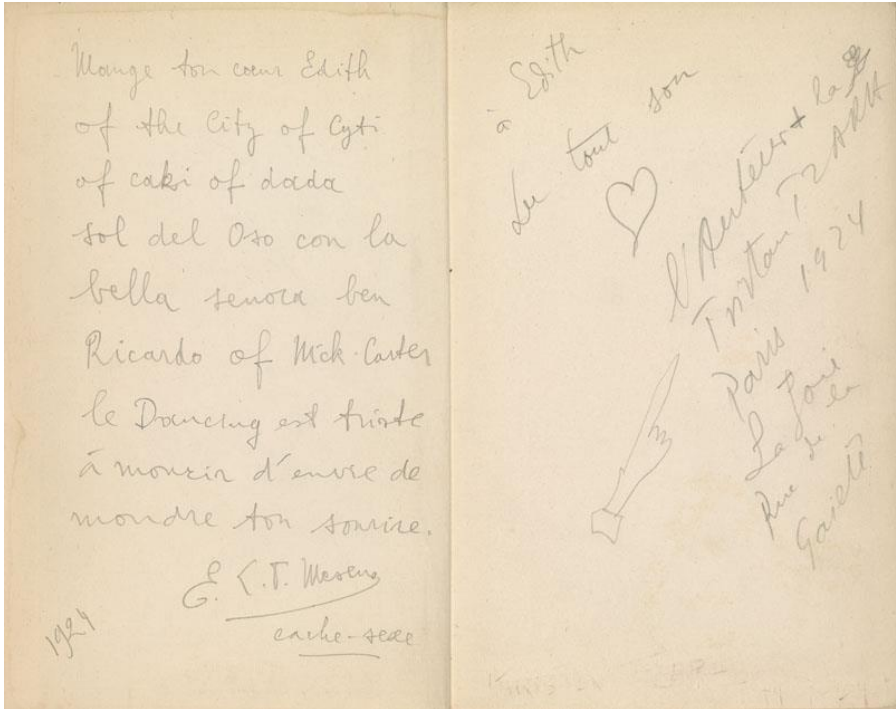 Mange ton cœur Edith
of the City of Cyti
of caki of dada
sol del Oso con la
bella senora ben
Ricardo of Nick Carter
le Dancing est triste
à mourir d'envie de
mondre ton sourire.
E. L. T. Mesens
cache-sexe
1924
à Edith
Le tout son
l'Auteur + la
Tristan TZARA
Paris 1924
La Joie
Rue de la
Gaieté